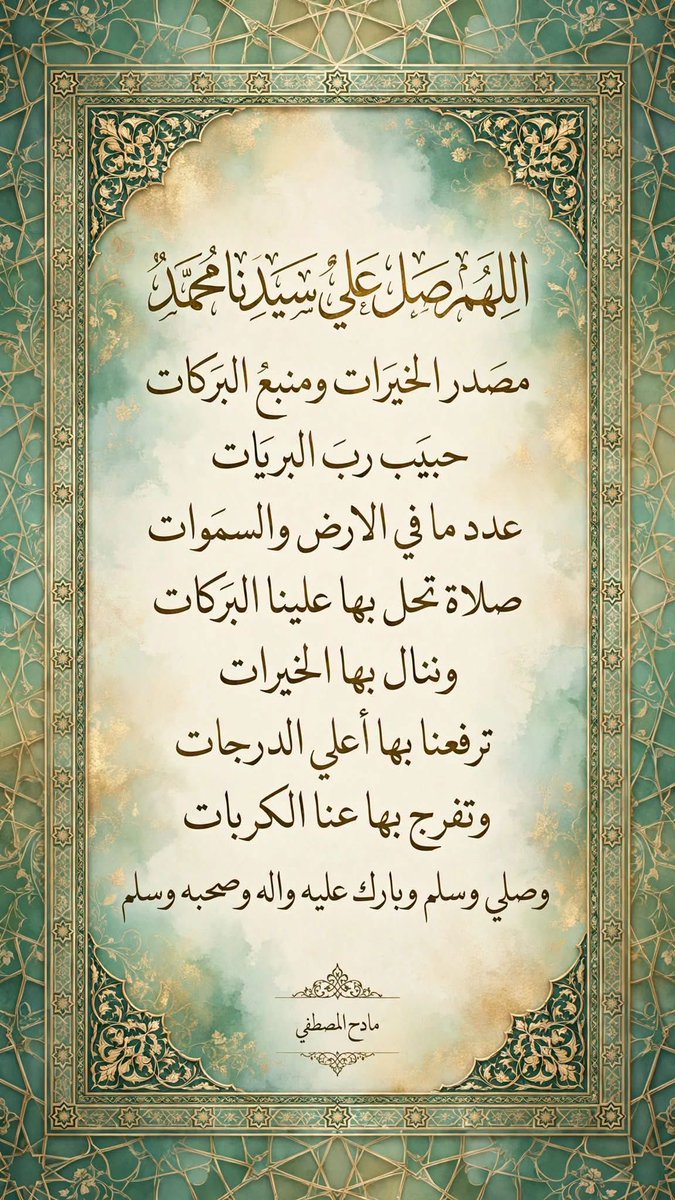 اللهم صل علي سيدنا محمد
مصدر الخيرات ومنبع البركات
حبيب رب البريات
عدد ما في الارض والسموات
صلاة تحل بها علينا البركات
وننال بها الخيرات
ترفعنا بها أعلي الدرجات
وتفرج بها عنا الكربات
وصلي وسلم وبارك عليه واله وصحبه وسلم
مادح المصطفي